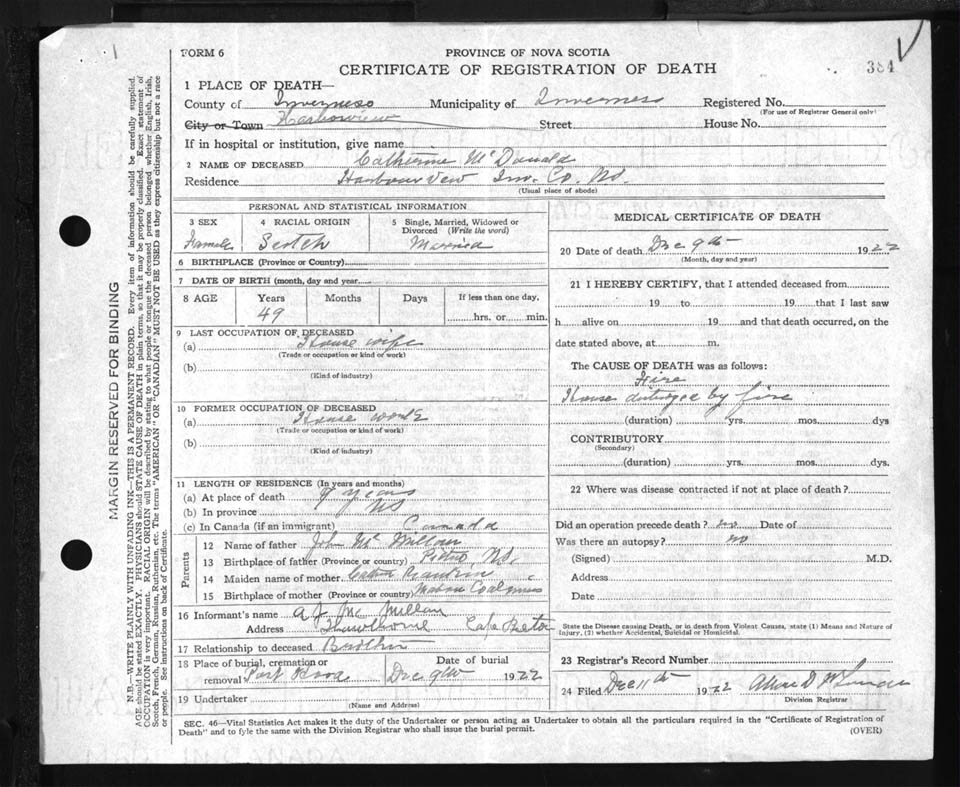 FORM 6
PROVINCE OF NOVA SCOTIA
CERTIFICATE OF REGISTRATION OF DEATH
384
1 PLACE OF DEATH—
County of Inverness Municipality of Inverness Registered No.
(For use of Registrar General only)
City or Town Harborview Street House No.
If in hospital or institution, give name
2 NAME OF DECEASED Catherine McDonald
Residence Harbour View Inv. Co. NS.
(Usual place of abode)
PERSONAL AND STATISTICAL INFORMATION
3 SEX 4 RACIAL ORIGIN 5 Single, Married, Widowed or Divorced (Write the word)
Female Scotch Married
6 BIRTHPLACE (Province or Country)
7 DATE OF BIRTH (month, day and year)
8 AGE Years Months Days If less than one day,
49 hrs. or min.
9 LAST OCCUPATION OF DECEASED
(a) House wife
(Trade or occupation or kind of work)
(b)
(Kind of industry)
10 FORMER OCCUPATION OF DECEASED
(a) House work
(Trade or occupation or kind of work)
(b)
(Kind of industry)
11 LENGTH OF RESIDENCE (In years and months)
(a) At place of death 9 years
(b) In province NS
(c) In Canada (if an immigrant) Canada
Parents
12 Name of father John McMillan
13 Birthplace of father (Province or country) NS.
14 Maiden name of mother Rankin
15 Birthplace of mother (Province or country) Mabou Coalmines
16 Informant's name A J McMillan
Address Hawthorne Cape Breton
17 Relationship to deceased Brother
18 Place of burial, cremation or removal Port Hood Date of burial Dec 9th 1922
19 Undertaker
(Name and Address)
MEDICAL CERTIFICATE OF DEATH
20 Date of death Dec 9th 1922
(Month, day and year)
21 I HEREBY CERTIFY, that I attended deceased from
19 to 19 that I last saw
h alive on 19 and that death occurred, on the
date stated above, at m.
The CAUSE OF DEATH was as follows:
Fire
House destroyed by fire
(duration) yrs. mos. dys
CONTRIBUTORY
(Secondary)
(duration) yrs. mos. dys.
22 Where was disease contracted if not at place of death?
Did an operation precede death? no Date of
Was there an autopsy? no
(Signed) M.D.
Address
Date
State the Disease causing Death, or in death from Violent Causes, state (1) Means and Nature of
Injury, (2) whether Accidental, Suicidal or Homicidal.
23 Registrar's Record Number
24 Filed Dec 11th 1922
Division Registrar
SEC. 46—Vital Statistics Act makes it the duty of the Undertaker or person acting as Undertaker to obtain all the particulars required in the "Certificate of Registration of
Death" and to fyle the same with the Division Registrar who shall issue the burial permit.
(OVER)
MARGIN RESERVED FOR BINDING
N.B.—WRITE PLAINLY WITH UNFADING INK—THIS IS A PERMANENT RECORD. Every item of information should be carefully supplied.
AGE should be stated EXACTLY. PHYSICIANS should STATE CAUSE OF DEATH in plain terms, so that it may be properly classified. Exact statement of
OCCUPATION is very important. RACIAL ORIGIN will be described by stating to what people or tongue the deceased person belonged whether English, Irish,
Scotch, French, German, Russian, Ruthenian, etc. The terms "AMERICAN" OR "CANADIAN" MUST NOT BE USED as they express citizenship but not a race
or people. See instructions on back of Certificate.